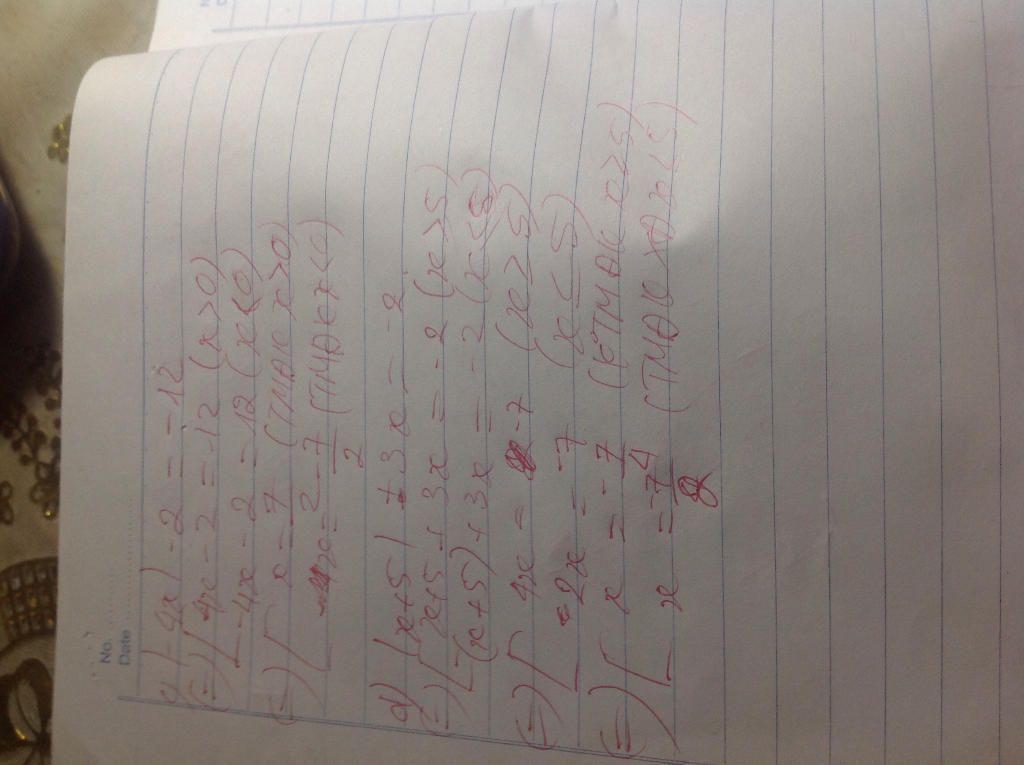 No.
Date
c) |-4x| -2 = -12
(=) [ 4x - 2 = -12 (x>0)
-4x - 2 = -12 (x<0)
(=) [ x = 7/2 (TMĐK x>0)
x = -7/2 (TMĐK x<0)
d) |x+5| + 3x = -2
(=) [ x+5 + 3x = -2 (x>5)
-(x+5) + 3x = -2 (x<5)
(=) [ 4x = -7 (x ≥ 5)
-2x = -7 (x ≤ 5)
(=) [ x = -7/4 (KTMĐK x>5)
x = -7 (TMĐK x<5)